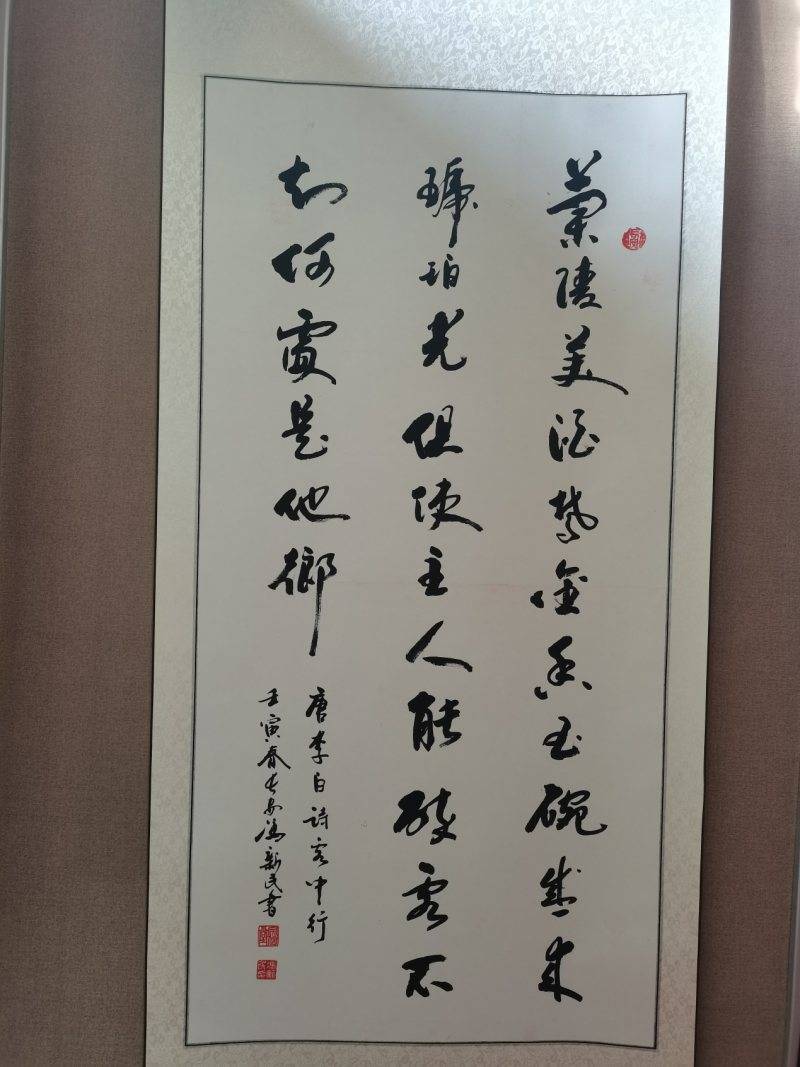 蘭陵美酒鬱金香玉碗盛来
琥珀光但使主人能醉客不
知何處是他鄉
唐李白詩客中行
壬寅春长安馮新民書